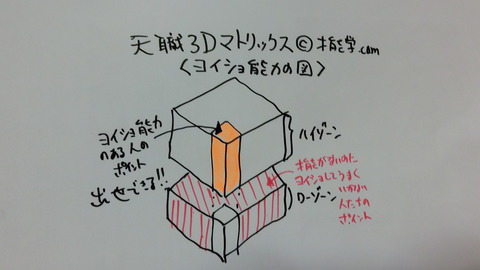 天職3Dマトリックス©才能学.com
<ヨイショ能力の図>
ヨイショ能力
のある人の
ポイント
出世できる!!
ハイゾーン
才能がないのに
ヨイショしてうまく
いかない
人たちの
ポイント
ローゾーン